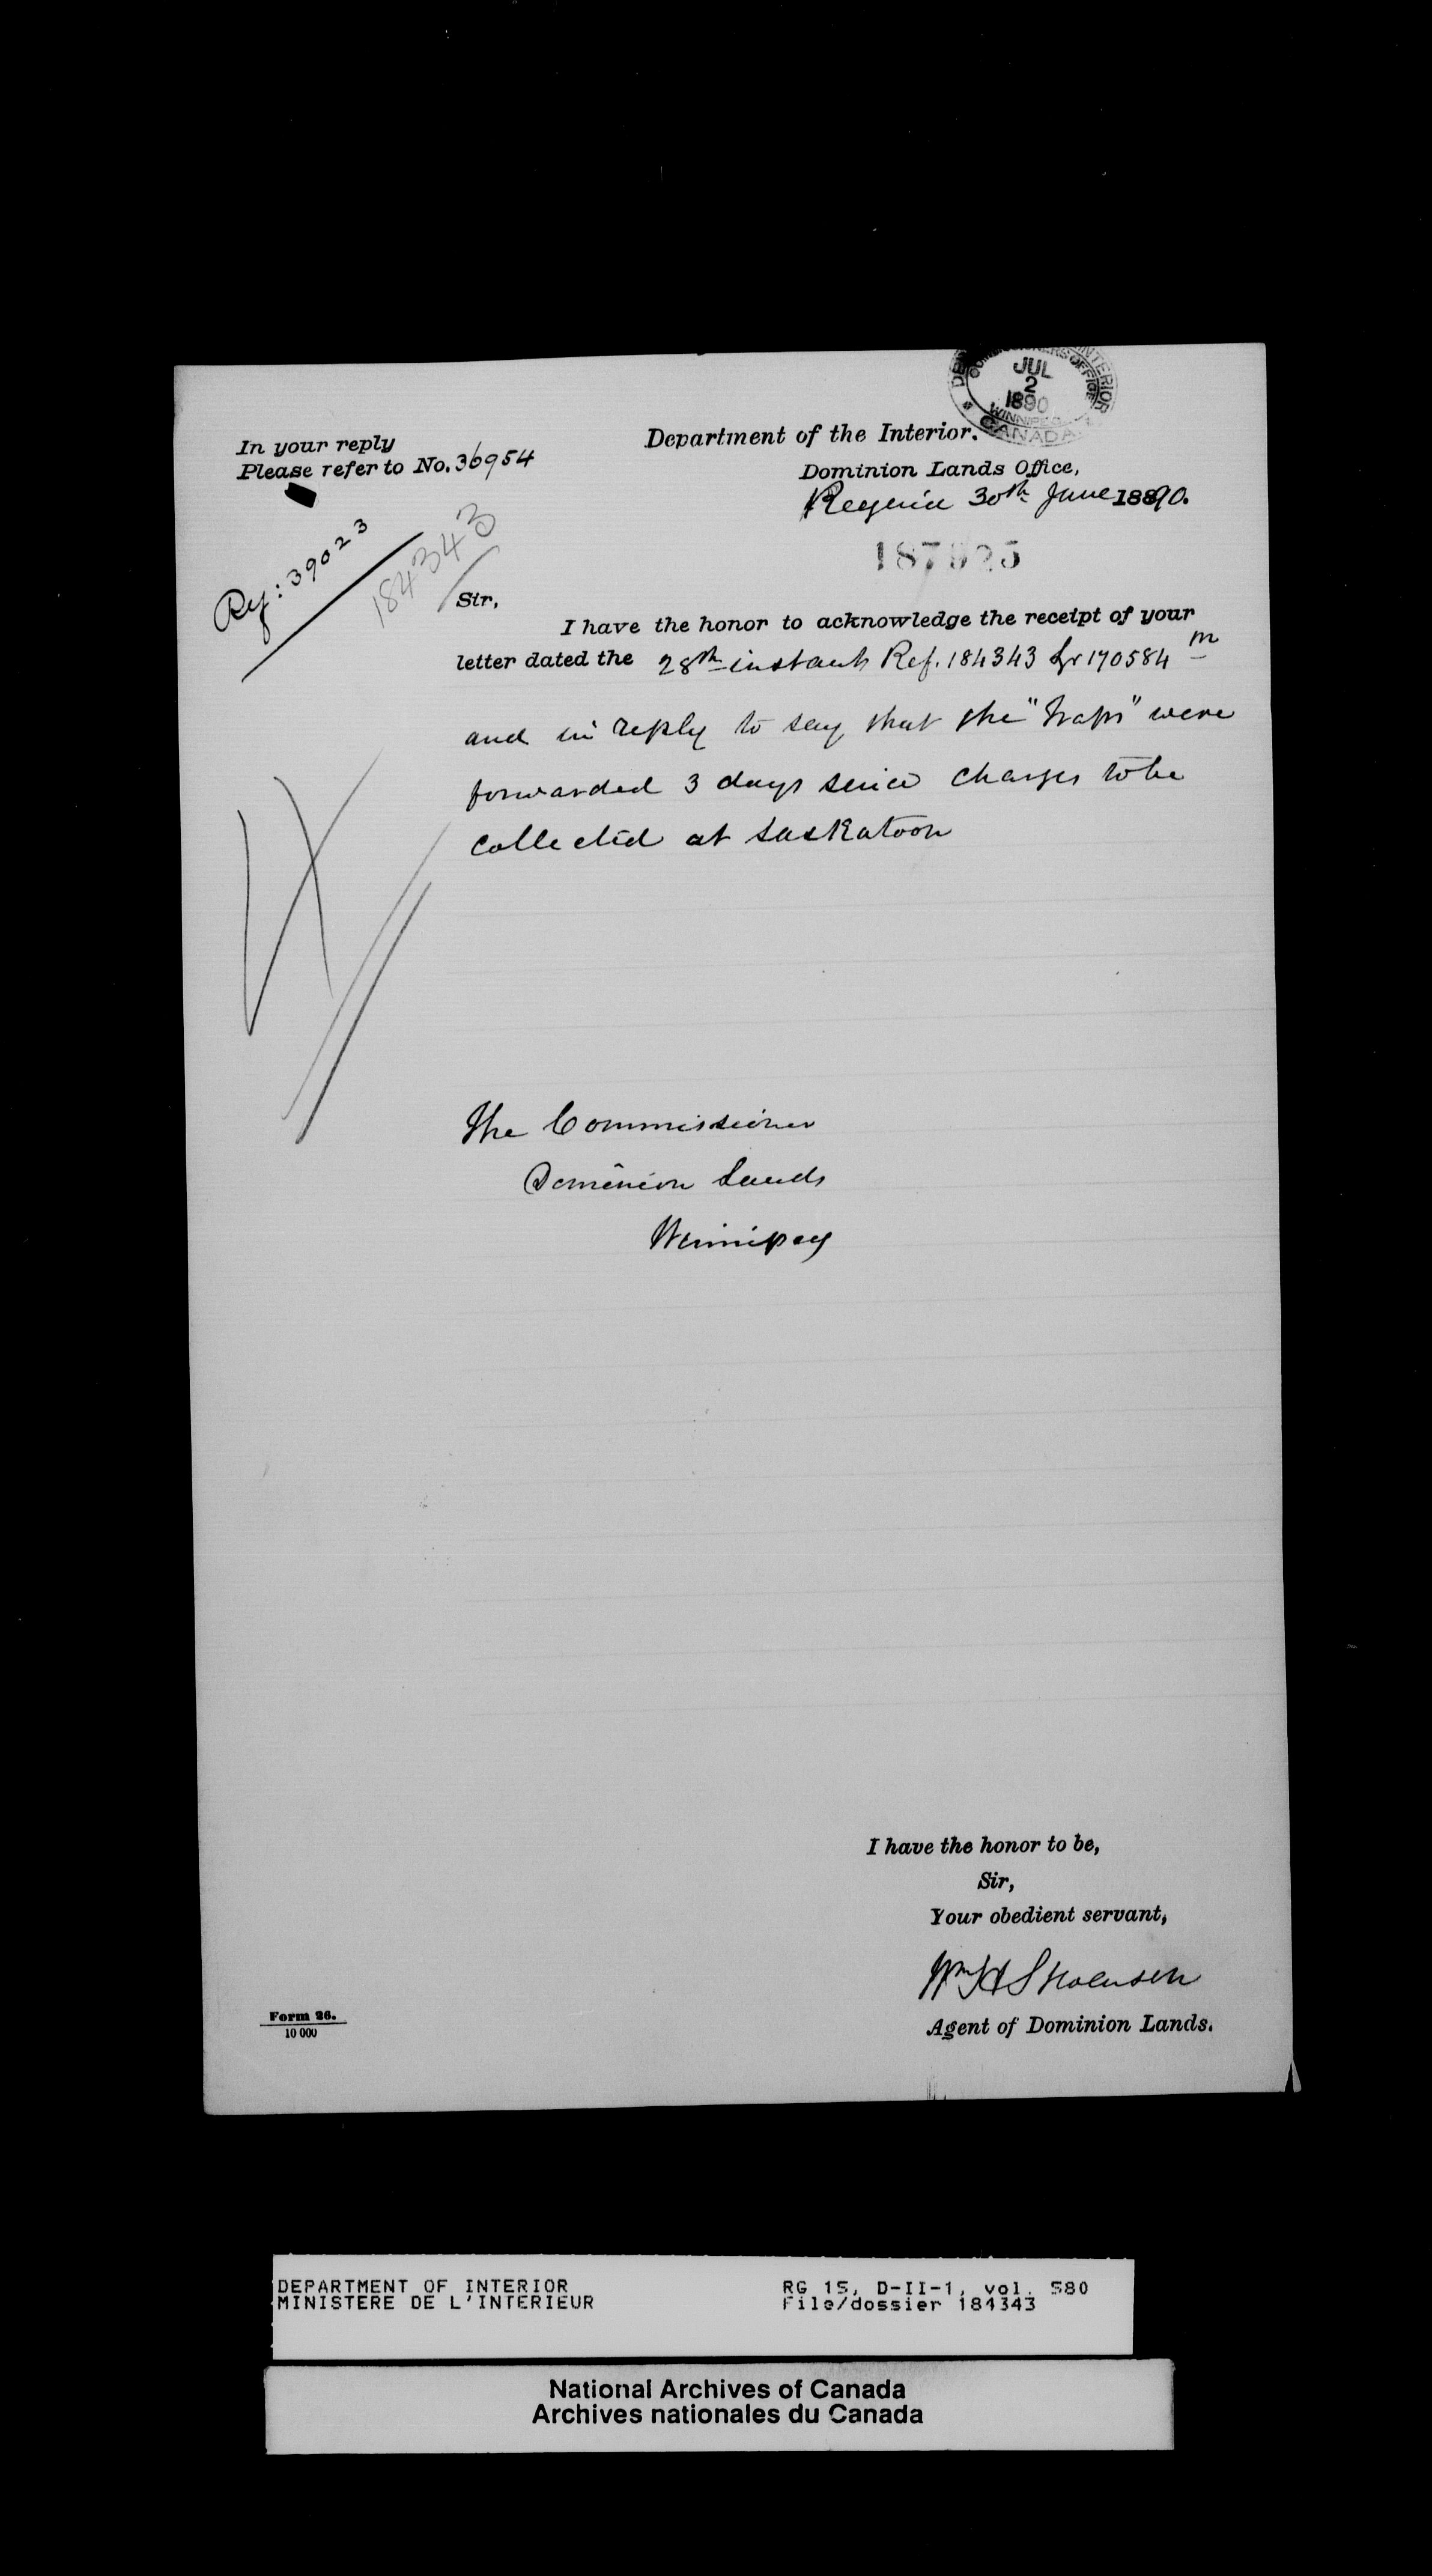 JUL
2
1890
WINNIPEG
CANADA
In your reply
Please refer to No. 36954
Department of the Interior.
Dominion Lands Office,
Regina 30th June 1890.
Rg: 39023
184343
Sir,
I have the honor to acknowledge the receipt of your
letter dated the 28th instant Ref. 184343 Lr 170584 m
and in reply to say that the "traps" were
forwarded 3 days since charges to be
collected at Saskatoon
The Commissioner
Dominion Lands
Winnipeg
I have the honor to be,
Sir,
Your obedient servant,
Wm H
Agent of Dominion Lands.
Form 26.
10 000
DEPARTMENT OF INTERIOR
MINISTERE DE L'INTERIEUR
RG 15, D-II-1, vol. 580
File/dossier 184343
National Archives of Canada
Archives nationales du Canada